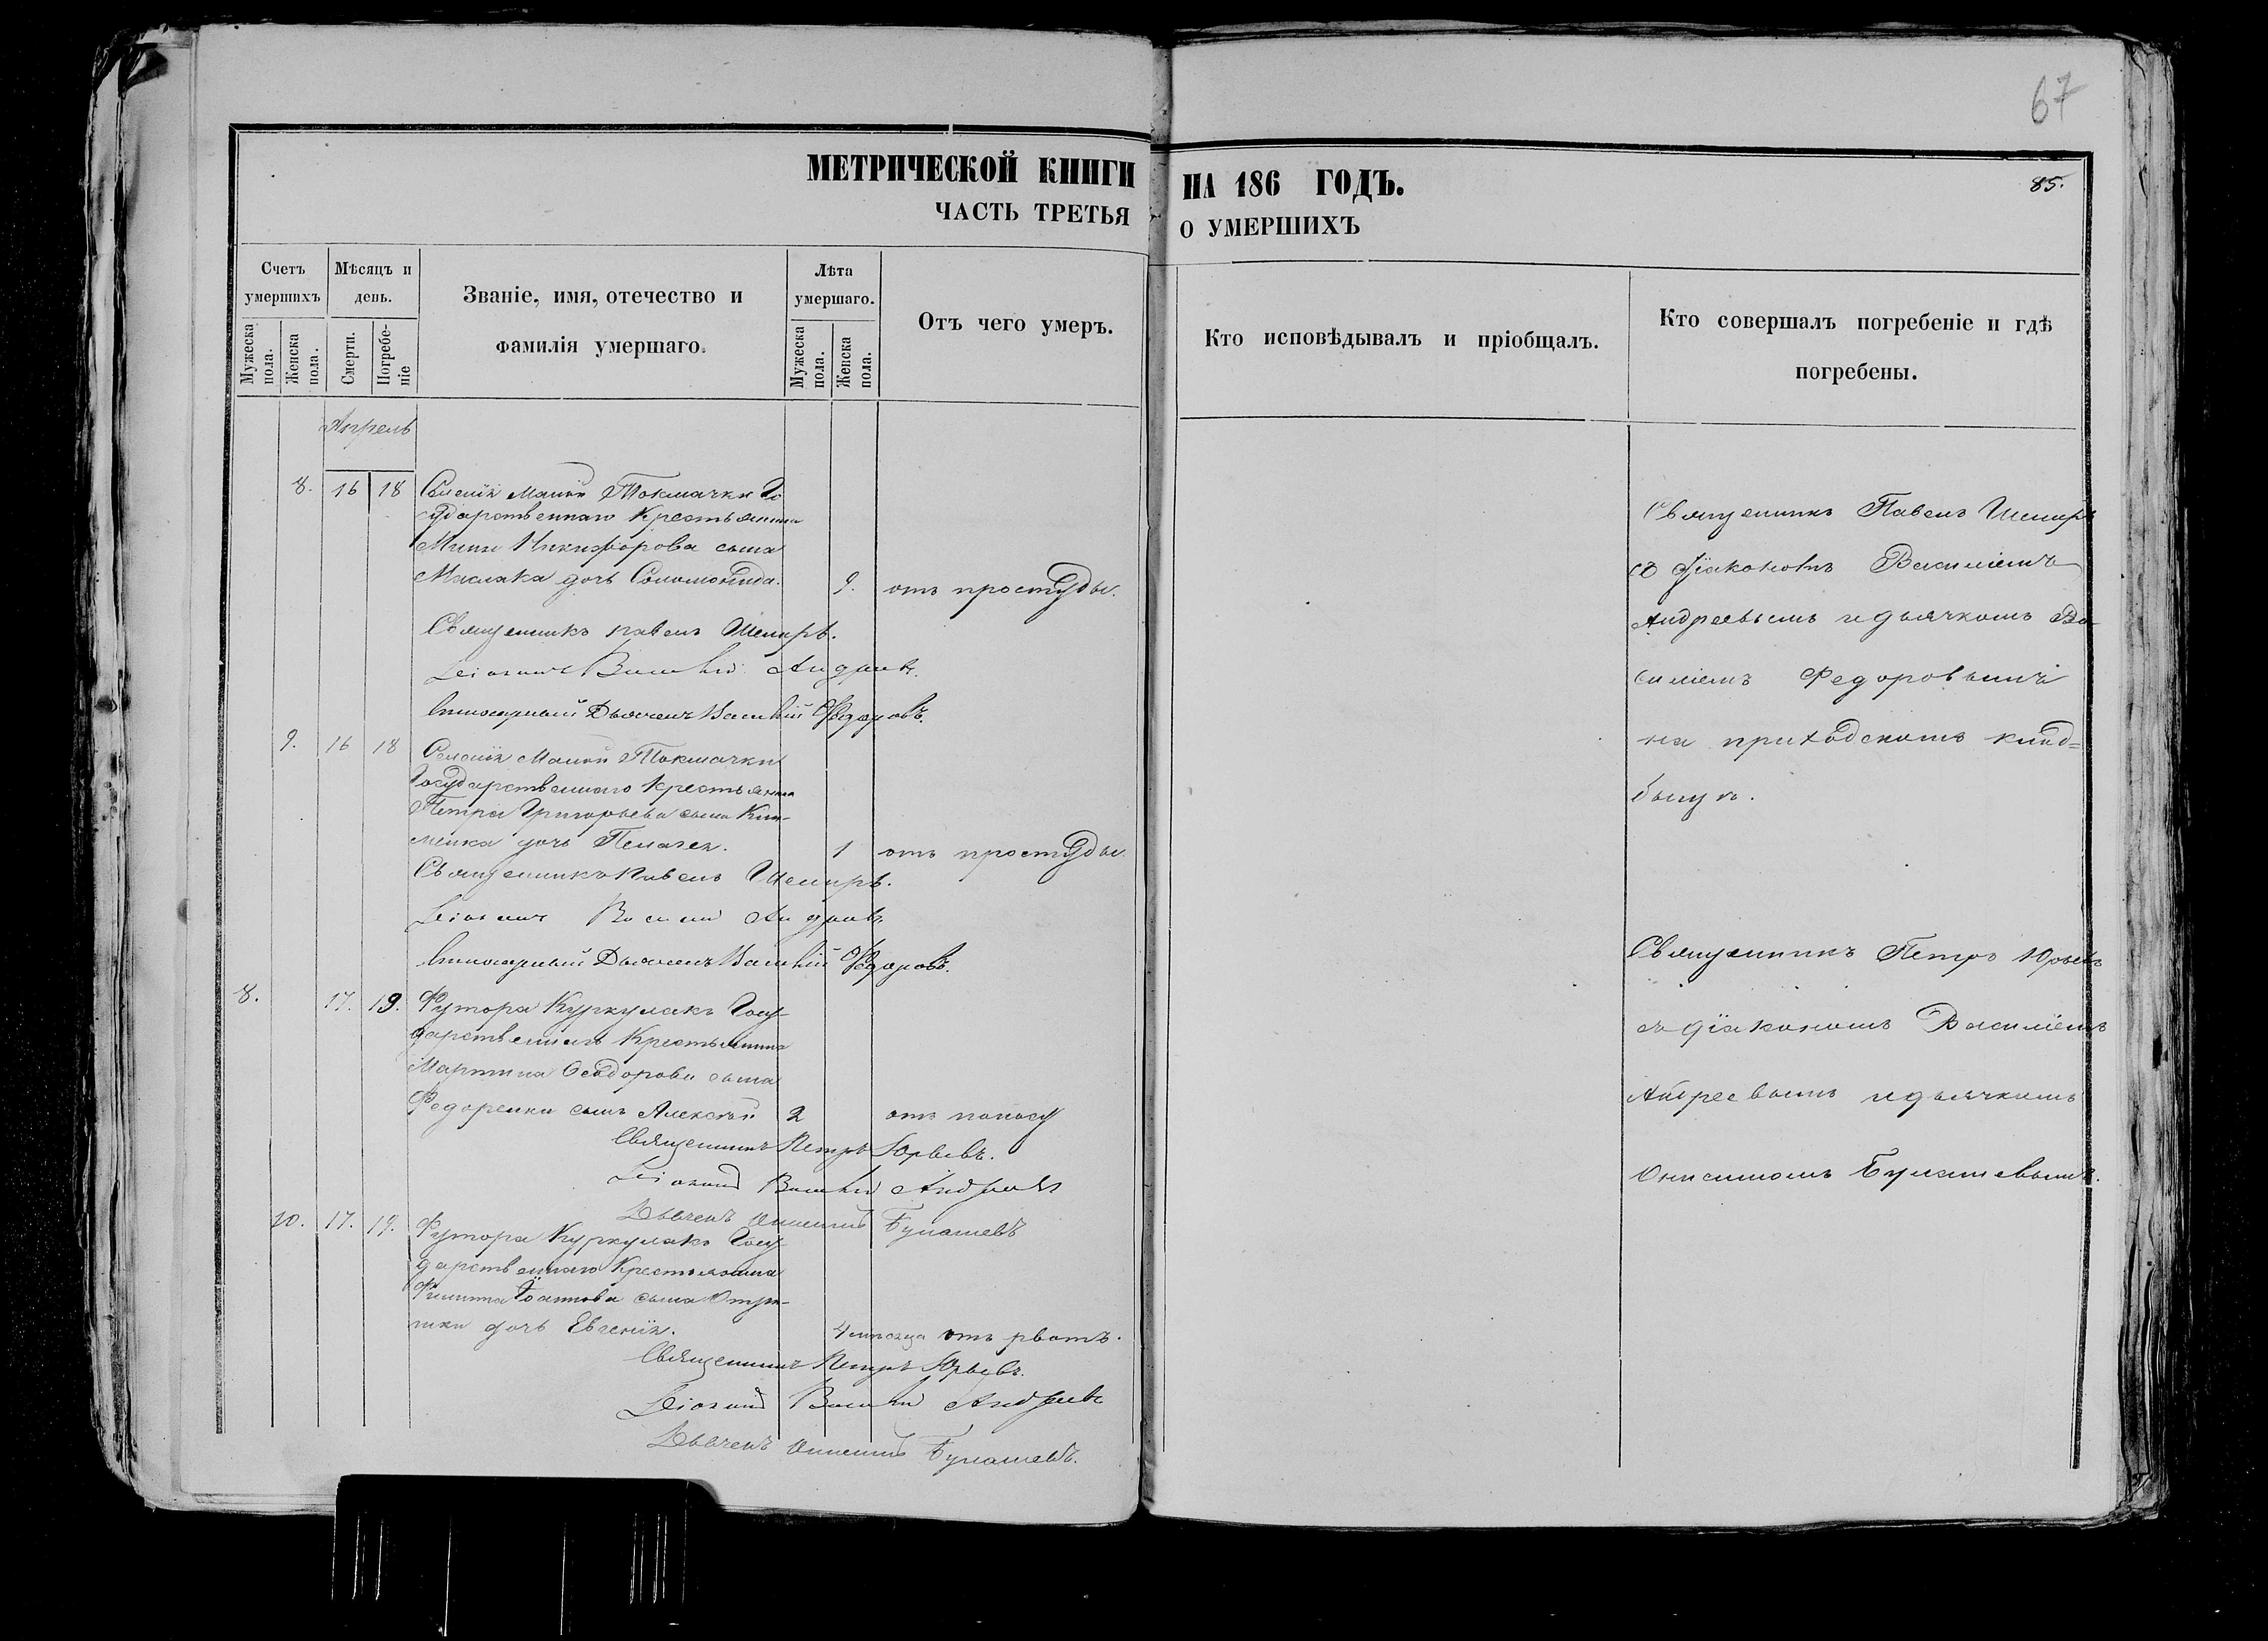 67
МЕТРИЧЕСКОЙ КНИГИ НА 186 ГОДЪ.
85.
ЧАСТЬ ТРЕТЬЯ О УМЕРШИХЪ
Счетъ умершихъ
Мужеска пола.
Женска пола.
Мѣсяцъ и день.
Смерти.
Погребе-
ніе
Званіе, имя, отечество и
фамилія умершаго.
Лѣта умершаго.
Мужеска пола.
Женска пола.
Отъ чего умеръ.
Кто исповѣдывалъ и пріобщалъ.
Кто совершалъ погребеніе и гдѣ
погребены.
Апрель
8. 16 18 Селенія Малой Токмачки Го
сударственнаго Крестьянина
Мины Никифорова сына
дочь Соломонида. 9. отъ простуды.
Священникъ Павелъ
Діаконъ Василій Андреевъ.
Дьячекъ Василій Федоровъ.
9. 16 18 Селенія Малой Токмачки
Государственнаго Крестьянина
Петра Григорьева сына Кли-
менка дочь Пелагея. 1 отъ простуды.
Священникъ Павелъ
Діаконъ Василій Андреевъ.
Дьячекъ Василій Федоровъ.
8. 17. 19. Футора Куркулакъ Госу-
дарственнаго Крестьянина
Мартина Феодорова сына
Федоренка сынъ Алексѣй 2 отъ поносу
Священникъ Петръ Юрьевъ.
Діаконъ Василій Андреевъ
Дьячекъ Онисимъ Булашевъ
10. 17. 19. Футора Куркулакъ Госу-
дарственнаго Крестьянина
Филиппа Іоаннова сына
дочь Евгенія. 4 мѣсяца отъ рвотъ.
Священникъ Петръ Юрьевъ.
Діаконъ Василій Андреевъ
Дьячекъ Онисимъ Булашевъ.
Священникъ Павелъ
съ діакономъ Василіемъ
Андреевымъ и дьячкомъ Ва-
силіемъ Федоровымъ
на приходскомъ клад-
бищѣ.
Священникъ Петръ Юрьевъ
съ діакономъ Василіемъ
Андреевымъ и дьячкомъ
Онисимомъ Булашевымъ.